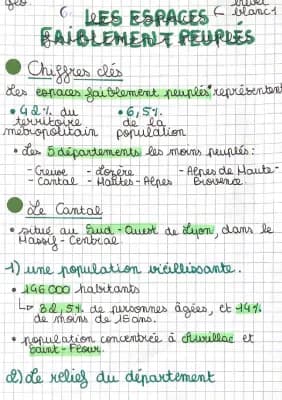 LES ESPACES
FAIBLEMENT PEUPLÉS
Chiffres clés
Les espaces faiblement peuplés représentent
• 42% du • 6,5%
territoire de la
métropolitain population
• Les 5 départements les moins peuplés:
- Creuse - Lozère - Alpes de Haute-
- Cantal - Hautes-Alpes Provence.
Le Cantal
• situé au Sud-Ouest de Lyon, dans le
Massif-Central.
1) une population vieillissante.
• 146 000 habitants
↳ 32,5% de personnes âgées, et 14%
de moins de 15ans.
• population concentrée à Aurillac et
Saint-Flour.
2) Le relief du département